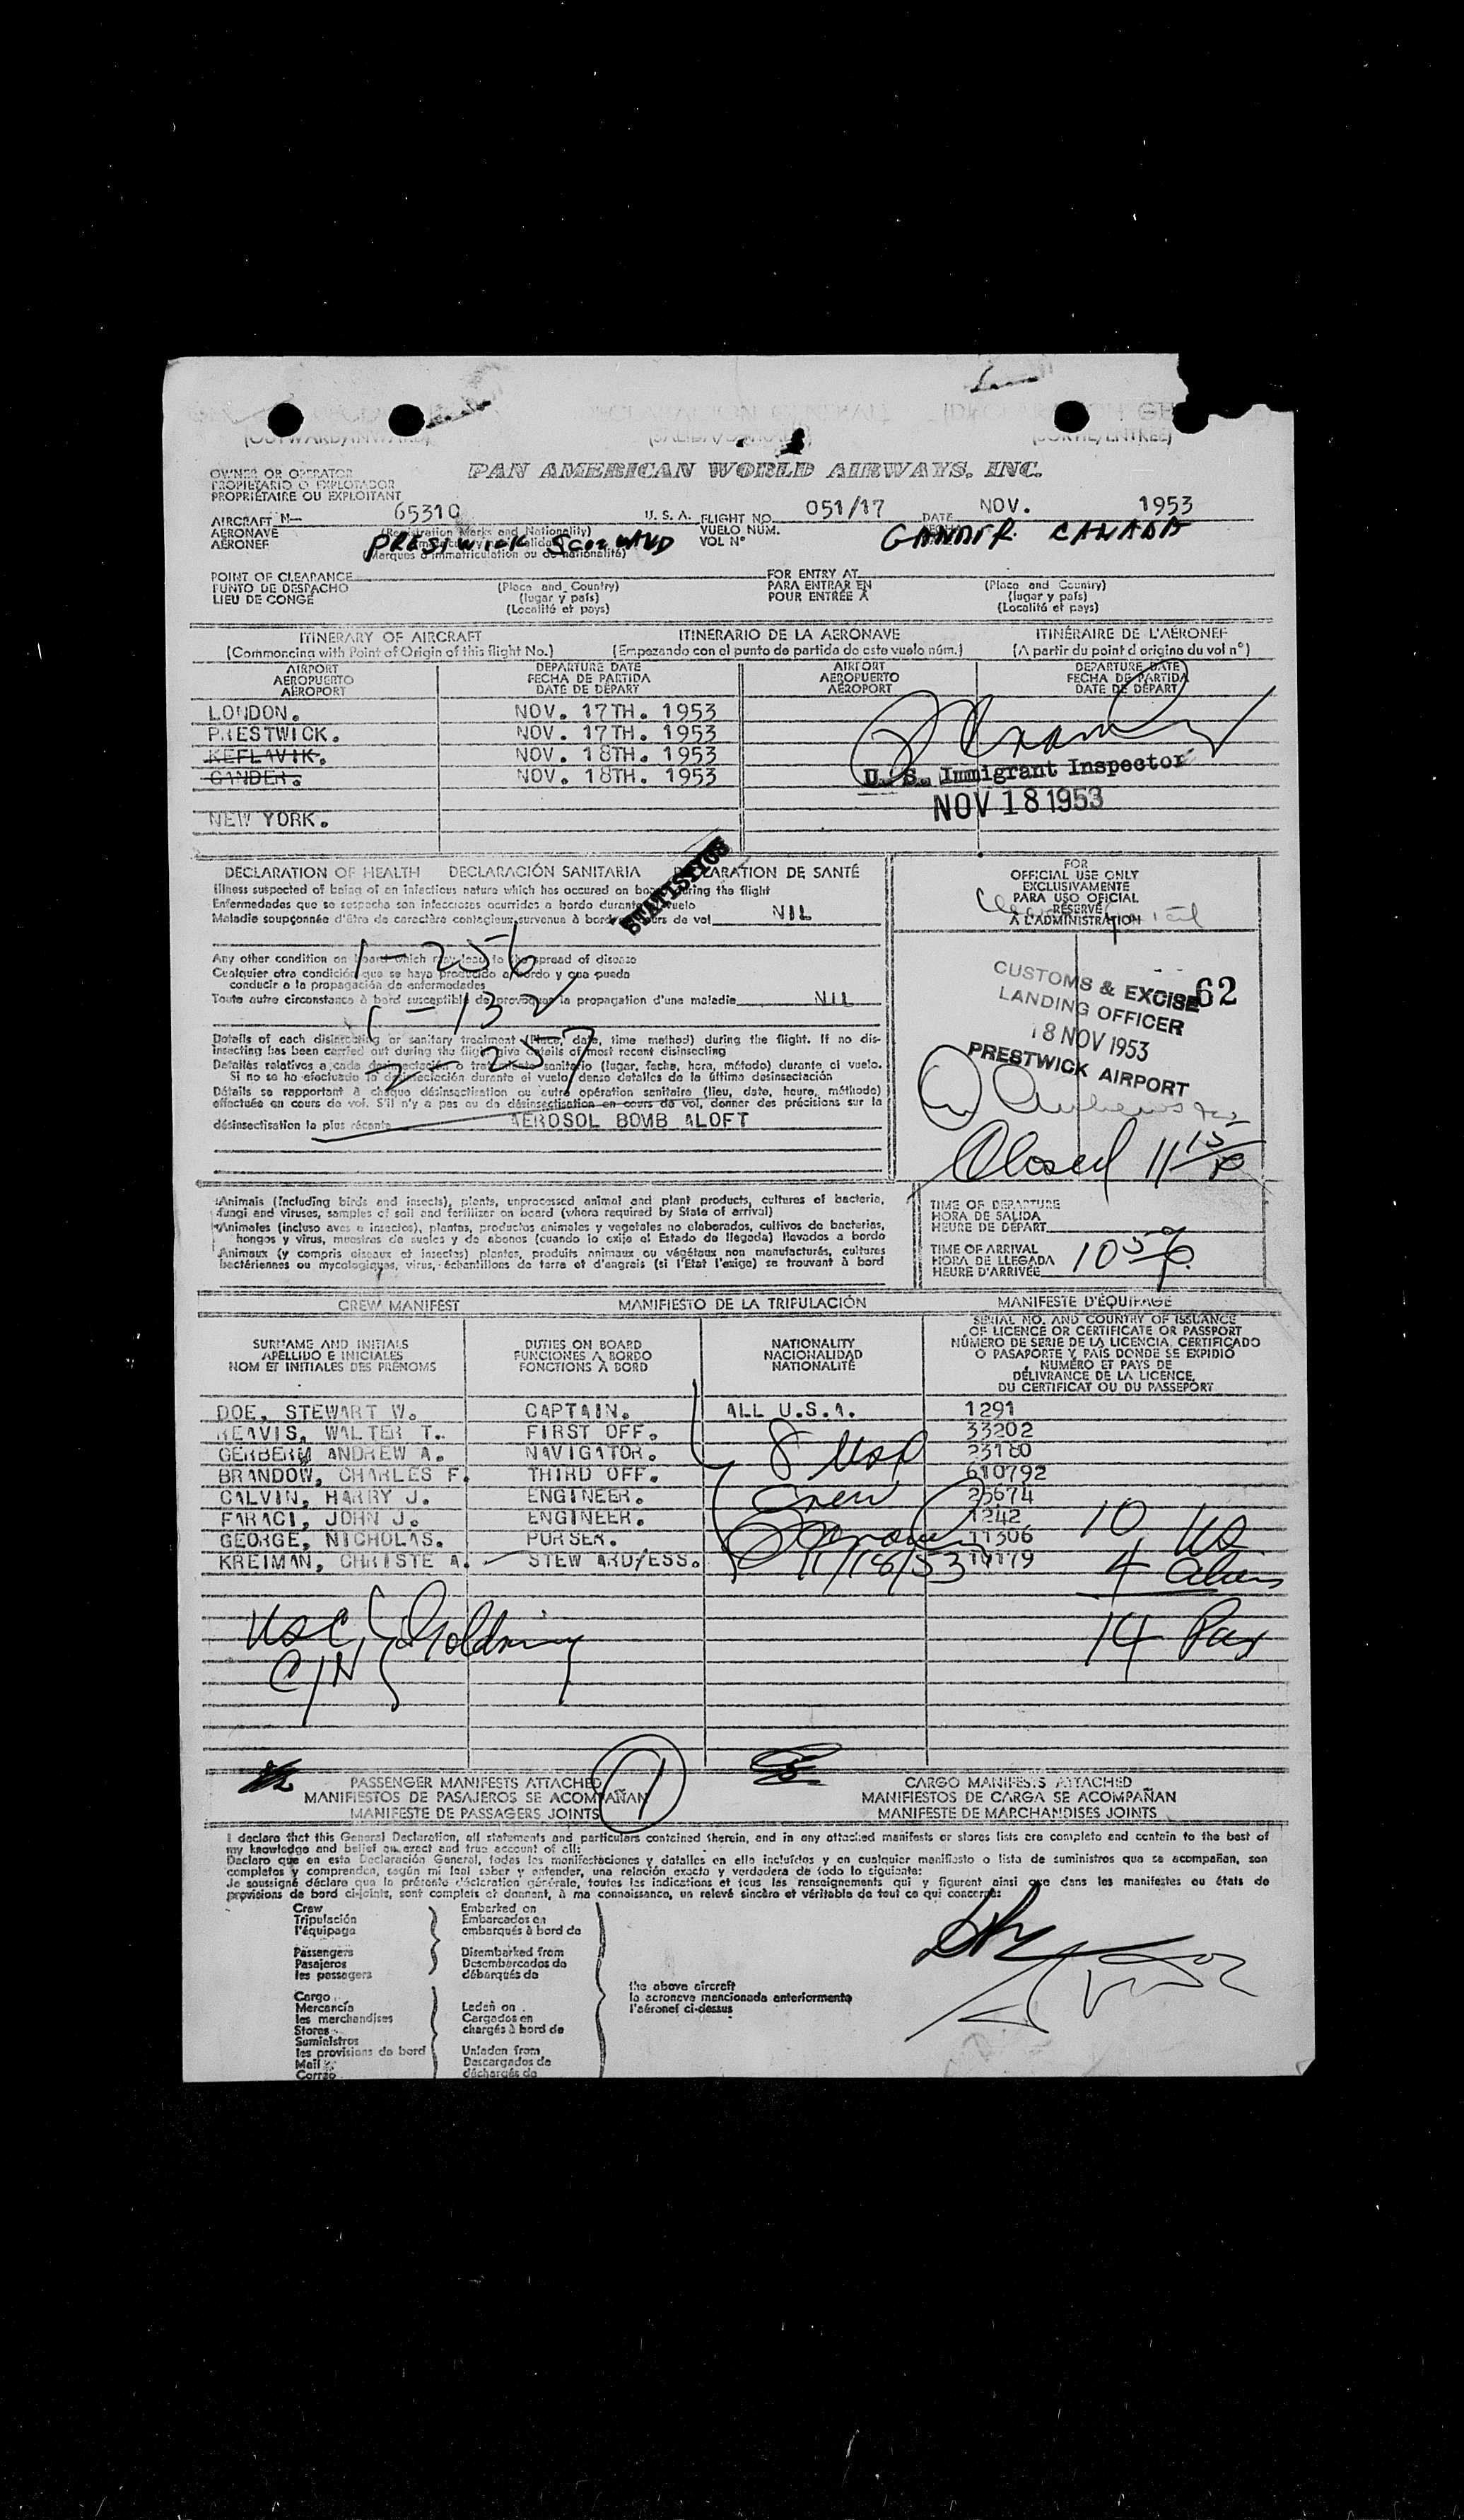 (OUTWARD/INWARD)
PAN AMERICAN WORLD AIRWAYS, INC.
OWNER OR OPERATOR
PROPIETARIO O EXPLOTADOR
PROPRIÉTAIRE OU EXPLOITANT
AIRCRAFT N— 65310 U. S. A. FLIGHT NO. 051/17 DATE NOV. 1953
AERONAVE (Registration Marks and Nationality) VUELO NÚM.
AÉRONEF VOL Nº
PRESTWICK SCOTLAND GANDER CANADA
(Marques d'immatriculation ou de nationalité)
POINT OF CLEARANCE (Place and Country) FOR ENTRY AT (Place and Country)
PUNTO DE DESPACHO (lugar y país) PARA ENTRAR EN (lugar y país)
LIEU DE CONGÉ (Localité et pays) POUR ENTRÉE À (Localité et pays)
ITINERARY OF AIRCRAFT ITINERARIO DE LA AERONAVE ITINÉRAIRE DE L'AÉRONEF
(Commencing with Point of Origin of this flight No.) (Empezando con el punto de partida de este vuelo núm.) (A partir du point d origine du vol nº)
AIRPORT DEPARTURE DATE AIRPORT DEPARTURE DATE
AEROPUERTO FECHA DE PARTIDA AEROPUERTO FECHA DE PARTIDA
AÉROPORT DATE DE DÉPART AÉROPORT DATE DE DÉPART
LONDON. NOV. 17TH. 1953
PRESTWICK. NOV. 17TH. 1953
KEFLAVIK. NOV. 18TH. 1953
GANDER. NOV. 18TH. 1953
U. S. Immigrant Inspector
NOV 18 1953
NEW YORK.
STATISTICS
DECLARATION OF HEALTH DECLARACIÓN SANITARIA DÉCLARATION DE SANTÉ
Illness suspected of being of an infectious nature which has occured on board during the flight
Enfermedades que se sospecha son infecciosas ocurridas a bordo durante el vuelo
Maladie soupçonnée d'être de caractère contagieux survenue à bord au cours de vol NIL
1-256
Any other condition on board which may lead to the spread of disease
Cualquier otra condición que se haya producido a bordo y que pueda
conducir a la propagación de enfermedades
Toute autre circonstance à bord susceptible de provoquer la propagation d'une maladie NIL
1-132
Details of each disinsecting or sanitary treatment (Place, date, time method) during the flight. If no dis-
insecting has been carried out during the flight give details of most recent disinsecting
2-257
Detalles relativos a cada desinsectación o tratamiento sanitario (lugar, fecha, hora, método) durante el vuelo.
Si no se ha efectuado la desinsectación durante el vuelo dense detalles de la última desinsectación
Détails se rapportant à chaque désinsectisation ou autre opération sanitaire (lieu, date, heure, méthode)
effectuée en cours de vol. S'il n'y a pas eu de désinsectisation en cours de vol, donner des précisions sur la
désinsectisation la plus récente AEROSOL BOMB ALOFT
FOR
OFFICIAL USE ONLY
EXCLUSIVAMENTE
PARA USO OFICIAL
RÉSERVÉ
À L'ADMINISTRATION
62
CUSTOMS & EXCISE
LANDING OFFICER
18 NOV 1953
PRESTWICK AIRPORT
Closed 11 15 P
Animals (including birds and insects), plants, unprocessed animal and plant products, cultures of bacteria,
fungi and viruses, samples of soil and fertilizer on board (where required by State of arrival)
Animales (incluso aves e insectos), plantas, productos animales y vegetales no elaborados, cultivos de bacterias,
hongos y virus, muestras de suelos y de abonos (cuando lo exije el Estado de llegada) llevados a bordo
Animaux (y compris oiseaux et insectes) plantes, produits animaux ou végétaux non manufacturés, cultures
bactériennes ou mycologiques, virus, échantillons de terre et d'engrais (si l'Etat l'exige) se trouvant à bord
TIME OF DEPARTURE
HORA DE SALIDA
HEURE DE DÉPART
TIME OF ARRIVAL
HORA DE LLEGADA
HEURE D'ARRIVÉE
CREW MANIFEST MANIFIESTO DE LA TRIPULACIÓN MANIFESTE D'ÉQUIPAGE
SURNAME AND INITIALS DUTIES ON BOARD NATIONALITY SERIAL NO. AND COUNTRY OF ISSUANCE
APELLIDO E INICIALES FUNCIONES A BORDO NACIONALIDAD OF LICENCE OR CERTIFICATE OR PASSPORT
NOM ET INITIALES DES PRÉNOMS FONCTIONS À BORD NATIONALITÉ NÚMERO DE SERIE DE LA LICENCIA, CERTIFICADO
O PASAPORTE Y PAÍS DONDE SE EXPIDIÓ
NUMÉRO ET PAYS DE
DÉLIVRANCE DE LA LICENCE,
DU CERTIFICAT OU DU PASSEPORT
DOE, STEWART W. CAPTAIN. ALL U.S.A. 1291
REAVIS, WALTER T. FIRST OFF. 33202
GERBERM ANDREW A. NAVIGATOR. 23180
BRANDOW, CHARLES F. THIRD OFF. 610792
CALVIN, HARRY J. ENGINEER. 25674
FARACI, JOHN J. ENGINEER. 1242
GEORGE, NICHOLAS. PURSER. 11306
KREIMAN, CHRISTE A. STEWARD/ESS.
8 USC
Crew
11/18/53
10 US
4 Aliens
14 Pax
USC
C/N
1
PASSENGER MANIFESTS ATTACHED CARGO MANIFESTS ATTACHED
MANIFIESTOS DE PASAJEROS SE ACOMPAÑAN MANIFIESTOS DE CARGA SE ACOMPAÑAN
MANIFESTE DE PASSAGERS JOINTS MANIFESTE DE MARCHANDISES JOINTS
I declare that this General Declaration, all statements and particulars contained therein, and in any attached manifests or stores lists are complete and contain to the best of
my knowledge and belief an exact and true account of all:
Declaro que en esta Declaración General, todas las manifestaciones y detalles en ella incluídos y en cualquier manifiesto o lista de suministros que se acompañan, son
completos y comprenden, según mi leal saber y entender, una relación exacta y verdadera de todo lo siguiente:
Je soussigné déclare que la présente déclaration générale, toutes les indications et tous les renseignements qui y figurent ainsi que dans les manifestes ou états de
provisions de bord ci-joints, sont complets et donnent, à ma connaissance, un relevé sincère et véritable de tout ce qui concerne:
Crew Embarked on
Tripulación Embarcados en
l'équipage embarqués à bord de
Passengers Disembarked from
Pasajeros Desembarcados de
les passagers débarqués de
the above aircraft
la aeronave mencionada anteriormente
l'aéronef ci-dessus
Cargo
Mercancía Laden on
les merchandises Cargados en
Stores chargés à bord de
Suministros
les provisions de bord Unladen from
Mail Descargados de
Correo déchargés de